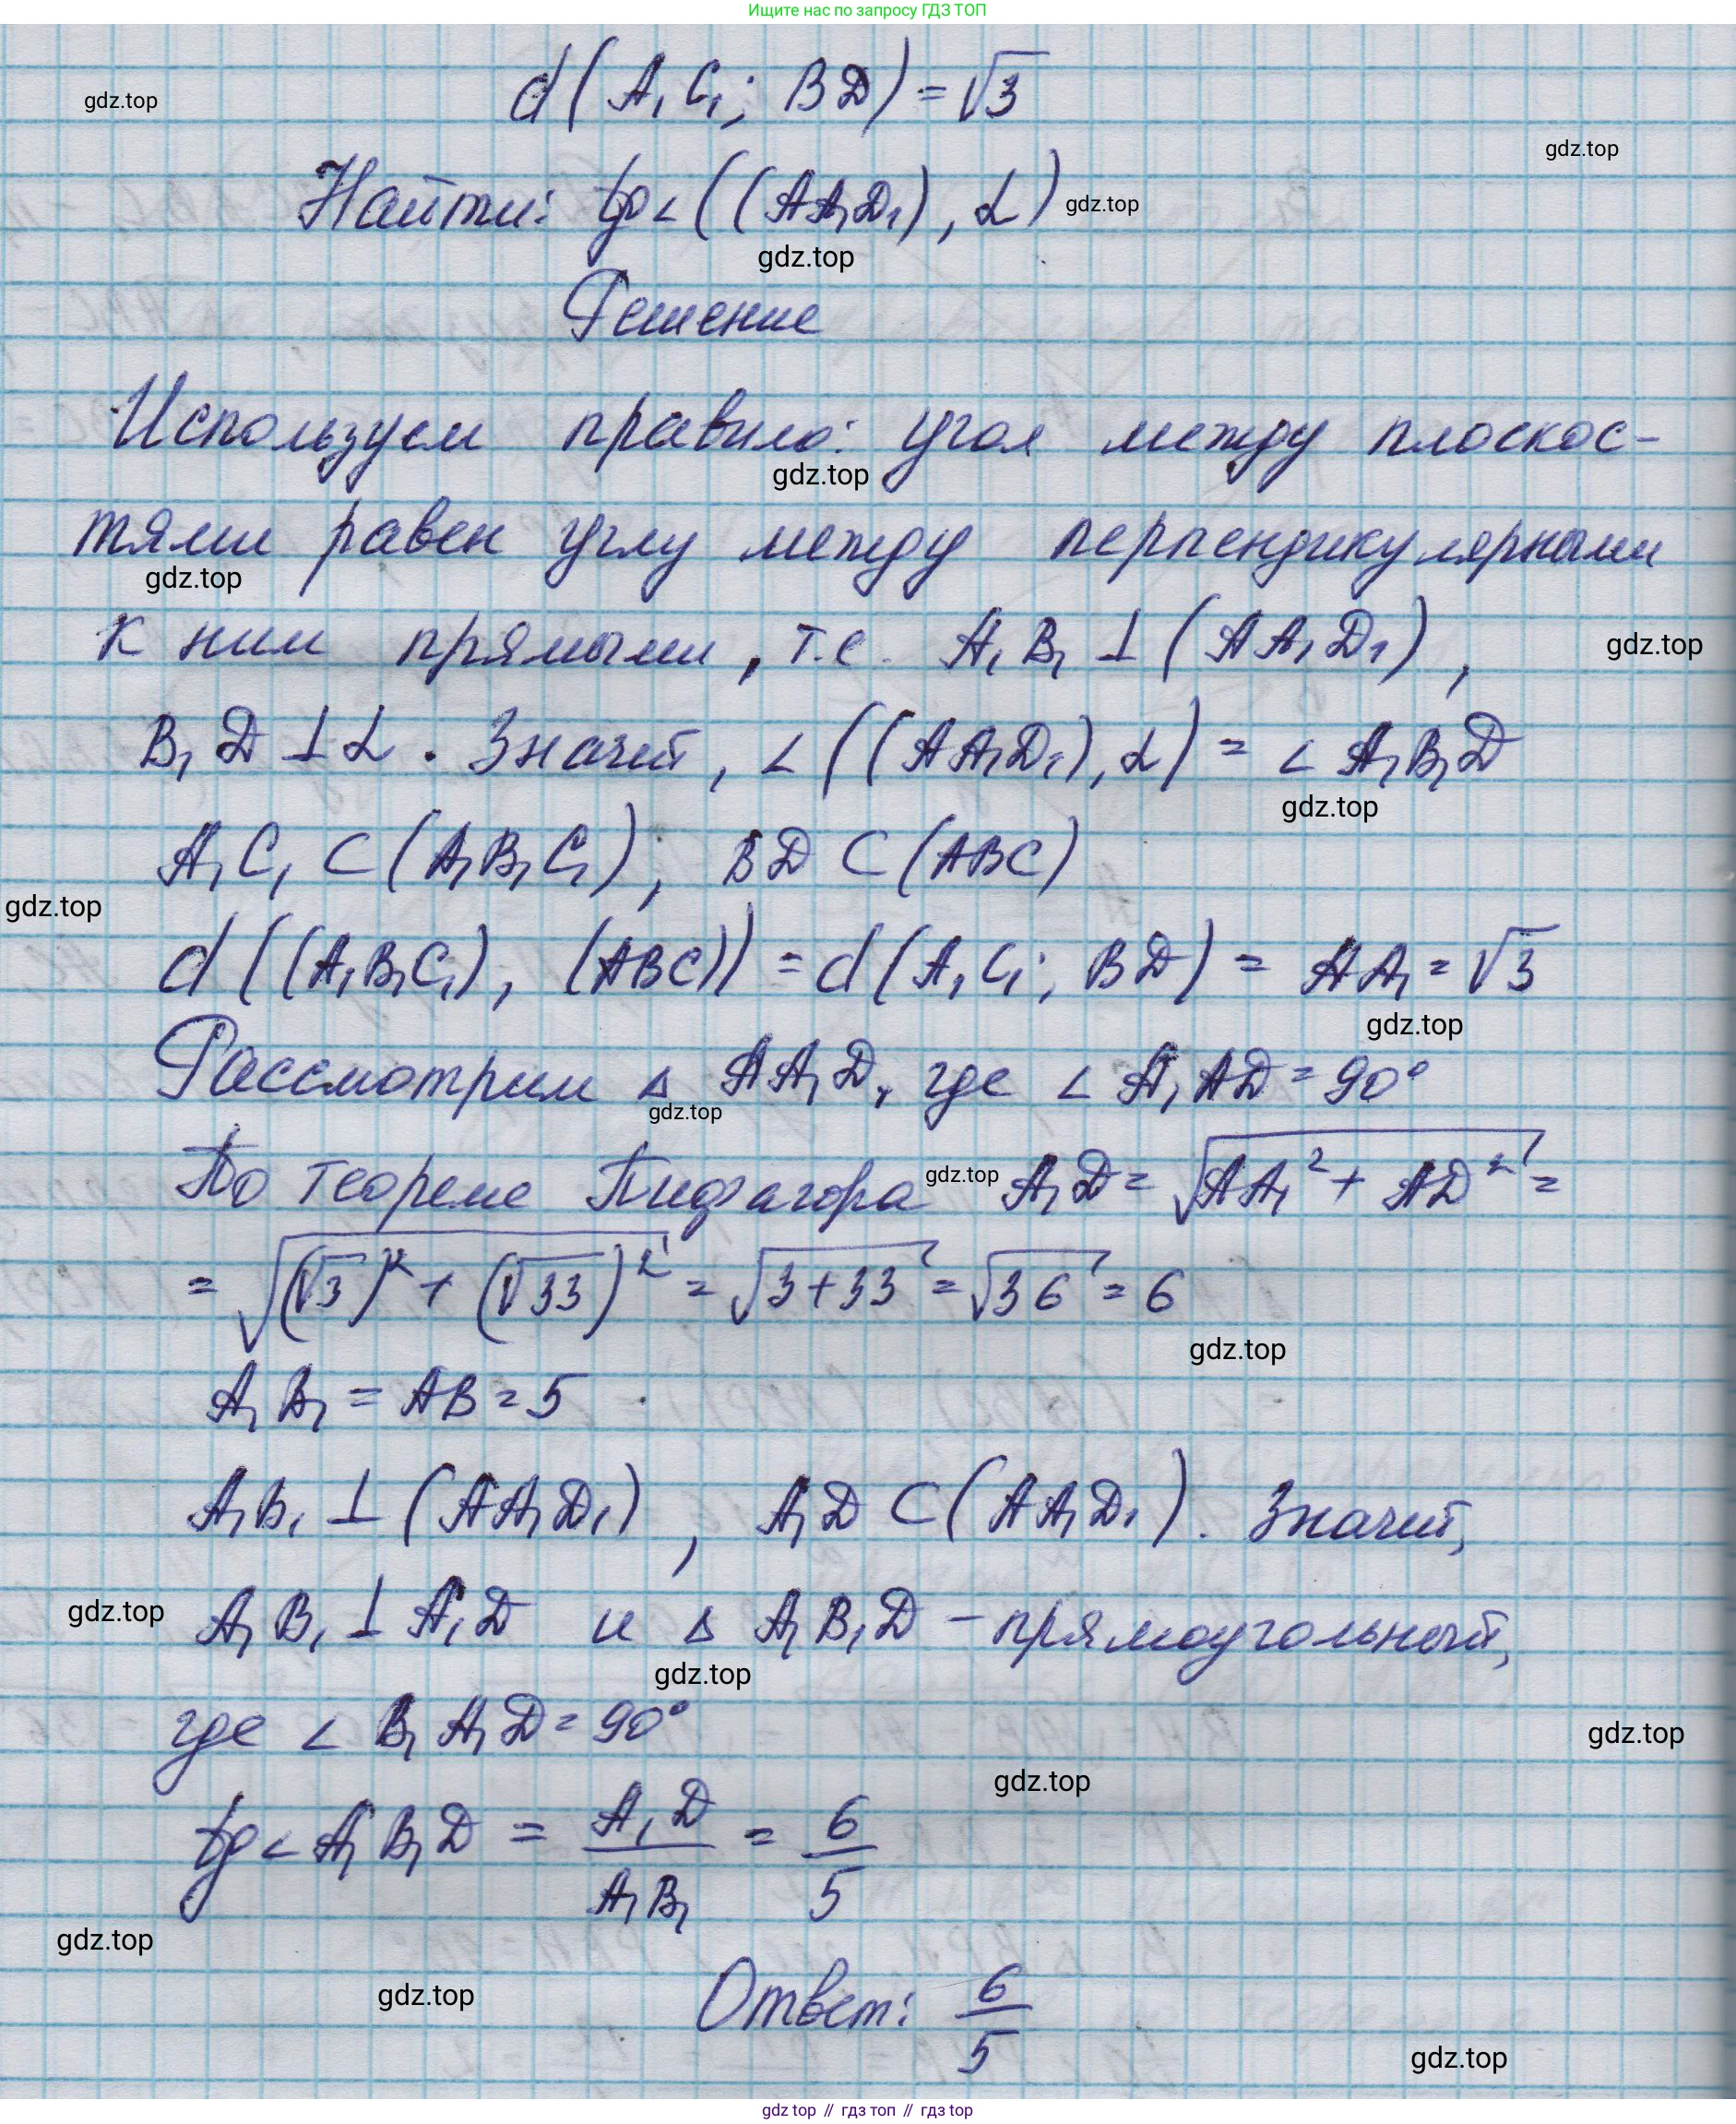 Ищите нас по запросу ГДЗ ТОП
d(A₁C₁; BD) = √3
gdz.top
gdz.top
Найти: tg∠((AA₁D₁), α) gdz.top
gdz.top
Решение
Используем правило: угол между плоскос-
gdz.top
тями равен углу между перпендикулярными
gdz.top
к ним прямыми, т.е. A₁B₁ ⊥ (AA₁D₁), gdz.top
B₁D ⊥ α. Значит, ∠((AA₁D₁), α) = ∠A₁B₁D
gdz.top
A₁C₁ ⊂ (A₁B₁C₁); BD ⊂ (ABC)
gdz.top
d((A₁B₁C₁), (ABC)) = d(A₁C₁; BD) = AA₁ = √3
gdz.top
Рассмотрим Δ AA₁D, где ∠A₁AD = 90°
gdz.top
По теореме Пифагора gdz.top A₁D = √(AA₁² + AD²) =
= √((√3)² + (√33)²) = √(3+33) = √36 = 6
gdz.top
A₁B₁ = AB = 5
A₁B₁ ⊥ (AA₁D₁), A₁D ⊂ (AA₁D₁). Значит,
gdz.top A₁B₁ ⊥ A₁D и Δ A₁B₁D – прямоугольный,
gdz.top
где ∠B₁A₁D = 90° gdz.top
gdz.top
tg∠A₁B₁D = A₁D/A₁B₁ = 6/5
gdz.top
gdz.top
Ответ: 6/5
gdz.top
gdz top // гдз топ // гдз top